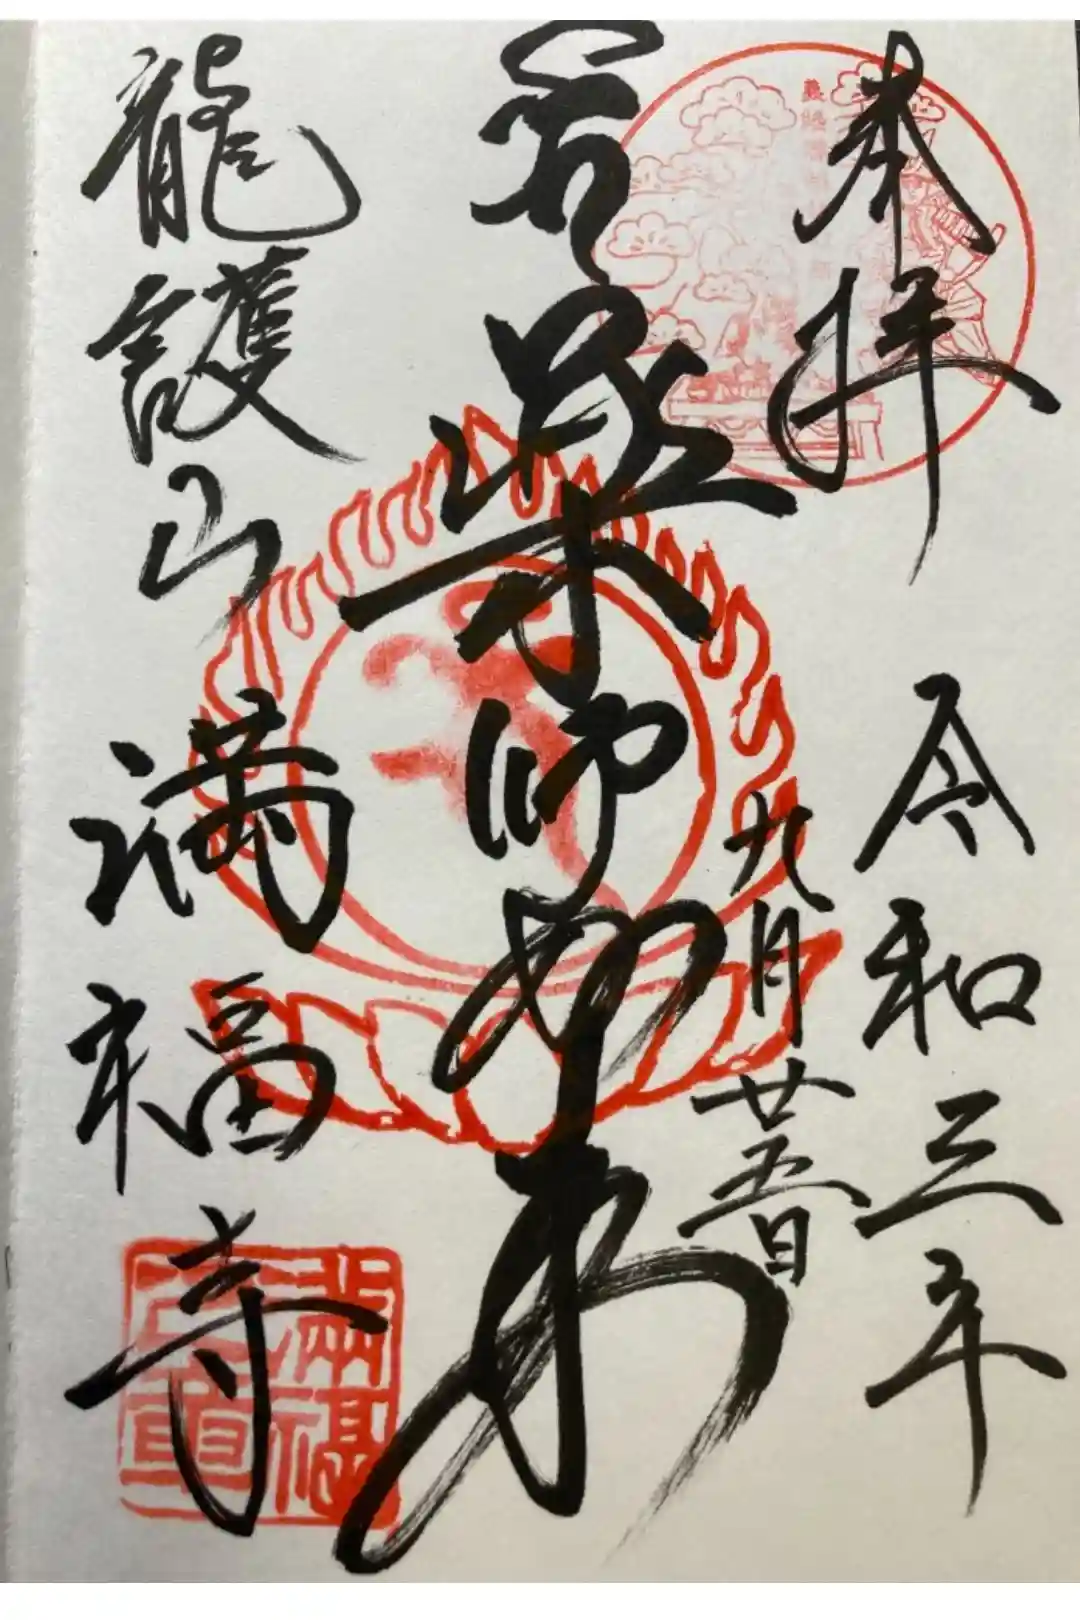 奉拝
令和三年
九月廿五日
薬師如来
龍護山
満福寺